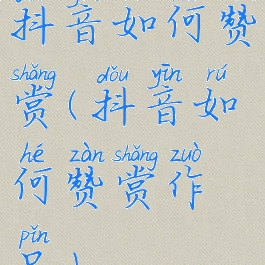 抖音如何赞
shǎng dǒu yīn rú
赏(抖音如
hé zàn shǎng zuò
何赞赏作
pǐn
品)